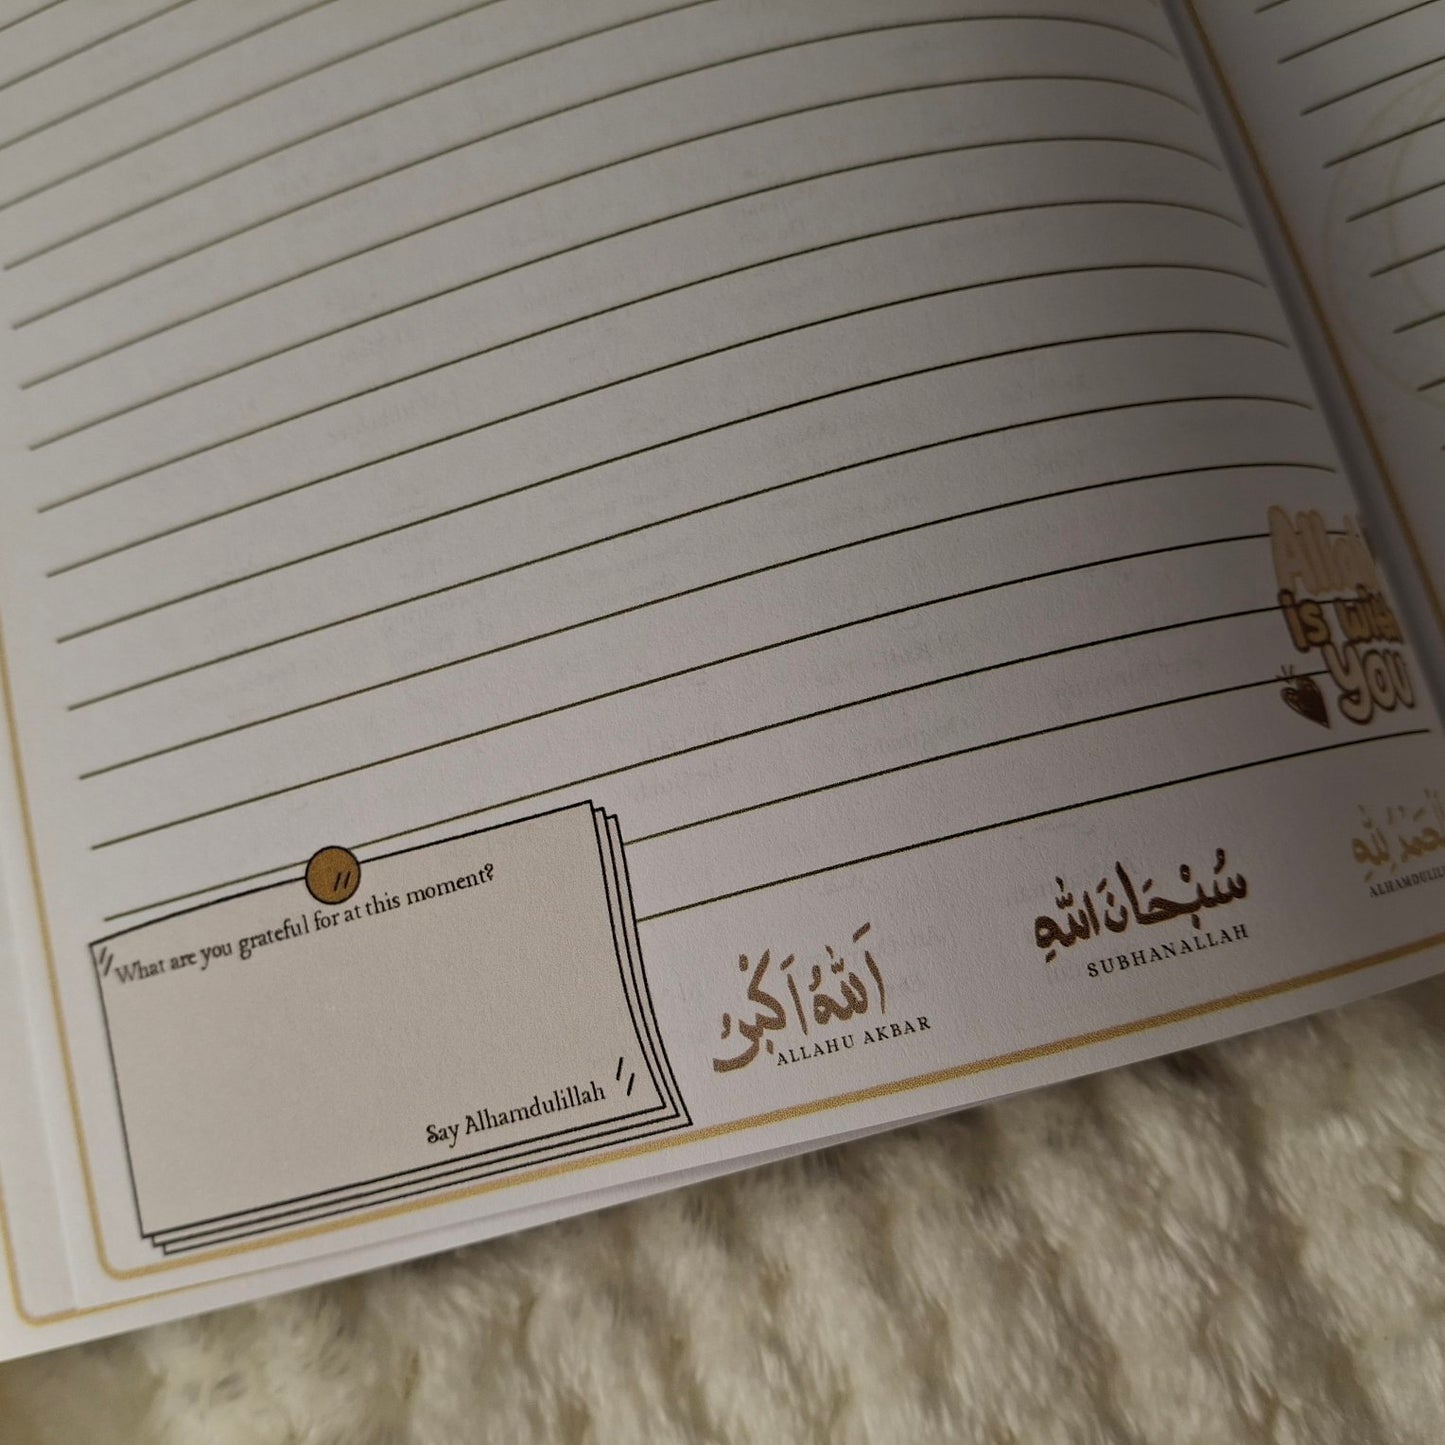 Allah
is with
you
What are you grateful for at this moment?
Say Alhamdulillah
اَللّٰهُ اَكْبَرُ
ALLAHU AKBAR
سُبْحَانَ اللّٰهِ
SUBHANALLAH